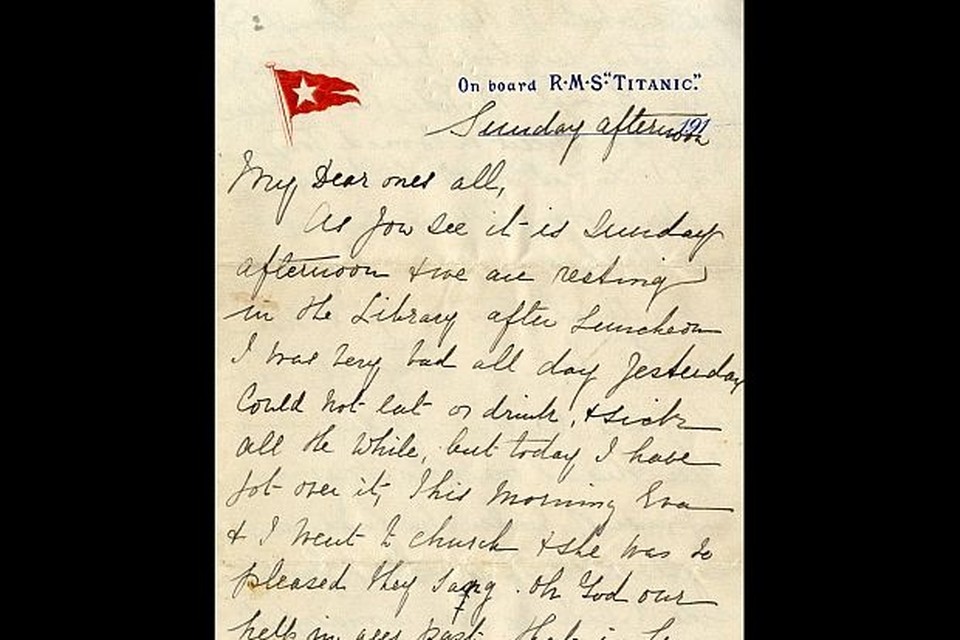 On board R·M·S. "TITANIC."
Sunday afternoon 191
My Dear ones all,
As you see it is Sunday
afternoon & we are resting
in the Library after Luncheon
I was very bad all day Yesterday
Could not eat or drink, & sick
all the while, but today I have
got over it, This morning Eva
& I went to church & she was so
pleased they sang . Oh God our
help in ages past,